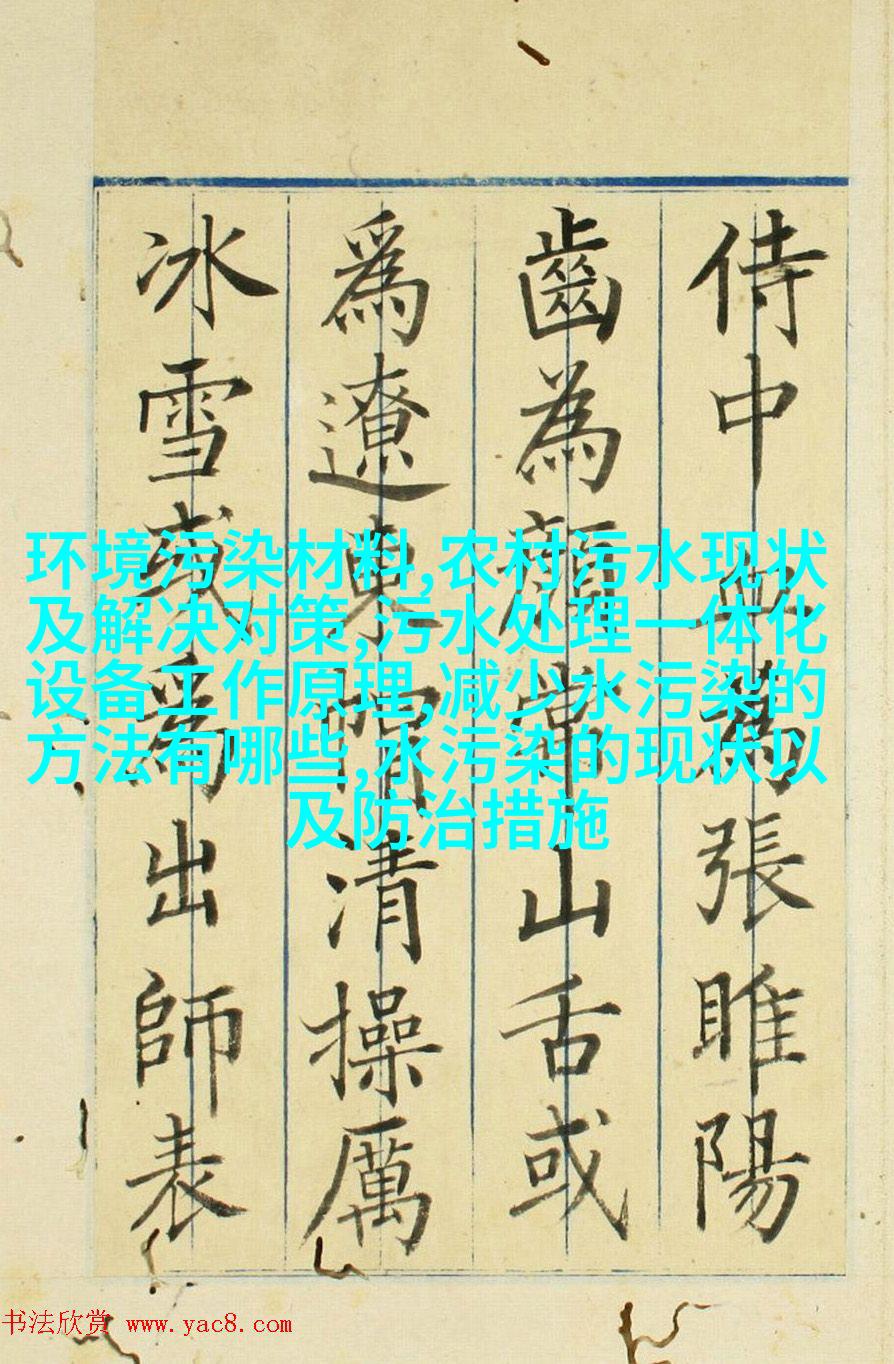 侍中血為張睢陽
齒為顏常山舌或
爲遼東帽清操厲
冰雪或爲出師表
环境污染材料,农村污水现状
及解决对策,污水处理一体化
设备工作原理,减少水污染的
方法有哪些,水污染的现状以
及防治措施
书法欣赏 www.yac8.com